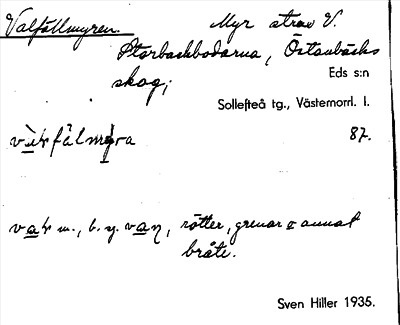 Valfällmyren. Myr strax V.
Storbackbodarna, Östanbäcks
skog;
Eds s:n
Sollefteå tg., Västernorrl. l.
87.
m., b. f. rötter, grenar o annat
bråte.
Sven Hiller 1935.